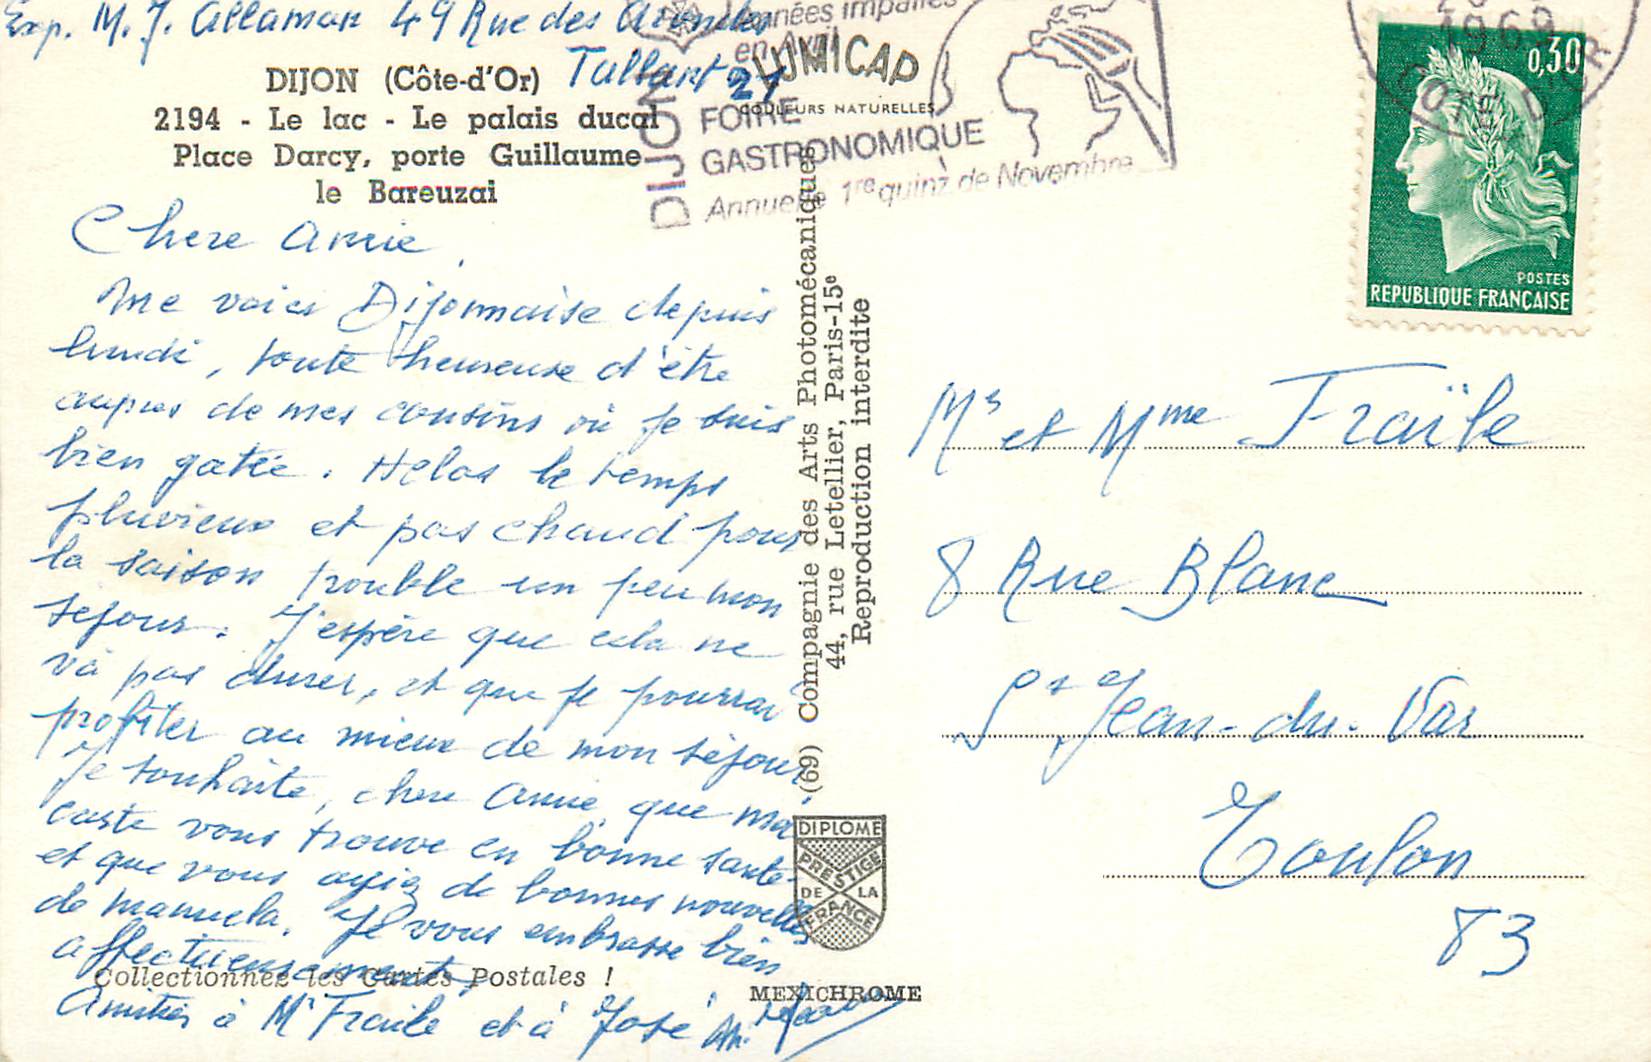 Exp. M. J. Allaman 49 Rue des
Tallant 21
DIJON (Côte-d'Or)
2194 - Le lac - Le palais ducal
Place Darcy, porte Guillaume
le Bareuzai
Chere Amie,
Me voici Dijonnaise depuis
lundi, toute heureuse d'être
aupres de mes cousins où je suis
bien gatée. Helas le temps
pluvieux et pas chaud pour
la saison trouble un peu mon
sejour. J'espère que cela ne
va pas durer, et que je pourrai
profiter au mieux de mon séjour
Je souhaite, chere Amie, que ma
carte vous trouve en bonne santé
et que vous ayiez de bonnes nouvelles
de manuela. Je vous embrasse bien
affectueusement,
Amitiés à Mr Fraïlé et à José
Collectionnez les Cartes Postales !
années impaires
en Avril
DIJON
FOIRE
GASTRONOMIQUE
Annuelle 1re quinz. de Novembre
LUMICAP
COULEURS NATURELLES
(69) Compagnie des Arts Photomécaniques
44, rue Letellier, Paris-15e
Reproduction interdite
DIPLOME
PRESTIGE
DE LA
FRANCE
MEXICHROME
1969
COTE D'OR
0,30
POSTES
REPUBLIQUE FRANÇAISE
Mr et Mme Fraïle
8 Rue Blanc
St Jean-du-Var
Toulon
83